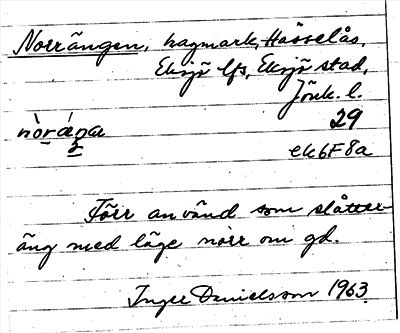 Norrängen, hagmark, Hässelås,
Eksjö lfs, Eksjö stad,
Jönk. l.
nòr ǽŋa 29
ek 6F8a
Förr använd som slåtter-
äng med läge norr om gd.
Inger Danielsson 1963.